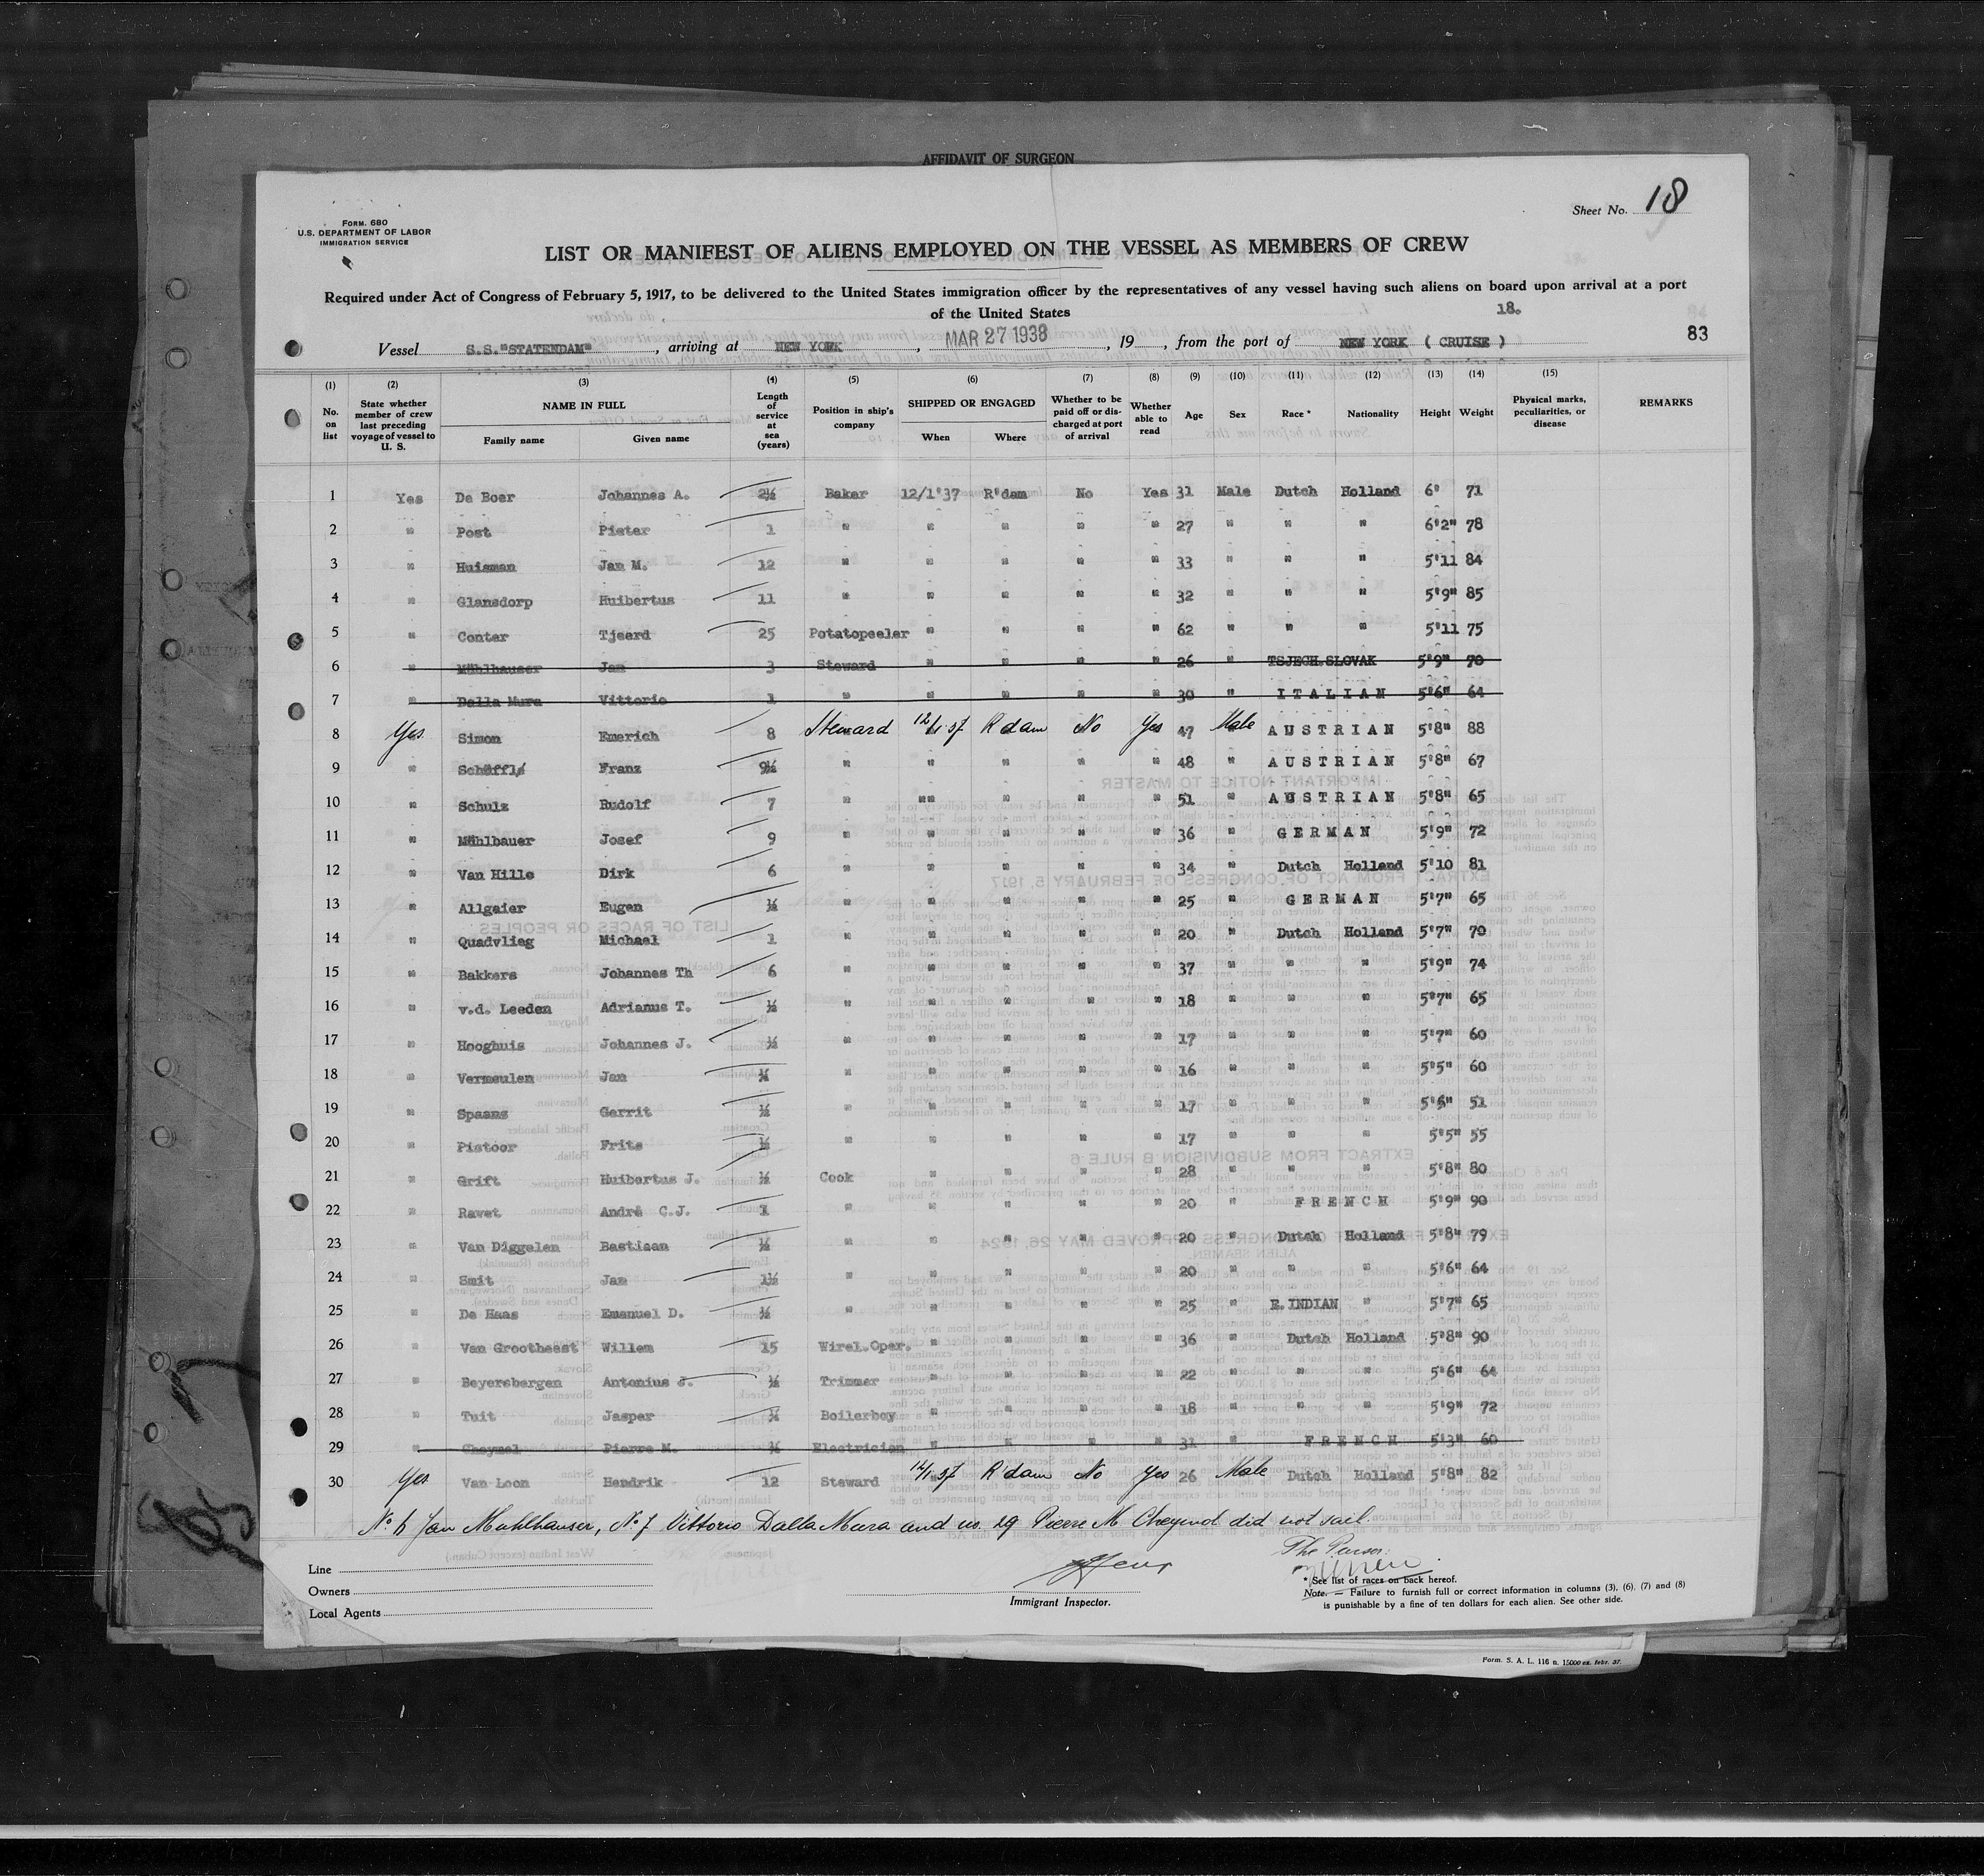 AFFIDAVIT OF SURGEON
Sheet No. 18
FORM. 680
U.S. DEPARTMENT OF LABOR
IMMIGRATION SERVICE
LIST OR MANIFEST OF ALIENS EMPLOYED ON THE VESSEL AS MEMBERS OF CREW
Required under Act of Congress of February 5, 1917, to be delivered to the United States immigration officer by the representatives of any vessel having such aliens on board upon arrival at a port
of the United States
18.
83
Vessel S.S."STATENDAM", arriving at NEW YORK, MAR 27 1938, 19, from the port of NEW YORK ( CRUISE )
(1) (2) (3) (4) (5) (6) (7) (8) (9) (10) (11) (12) (13) (14) (15)
No. on list State whether member of crew last preceding voyage of vessel to U. S. NAME IN FULL Family name Given name Length of service at sea (years) Position in ship's company SHIPPED OR ENGAGED When Where Whether to be paid off or discharged at port of arrival Whether able to read Age Sex Race * Nationality Height Weight Physical marks, peculiarities, or disease REMARKS
1 Yes De Boer Johannes A. 2½ Baker 12/1'37 R'dam No Yes 31 Male Dutch Holland 6' 71
2 " Post Pieter 1 " " " " " 27 " " " 6'2" 78
3 " Huisman Jan M. 12 " " " " " 33 " " " 5'11 84
4 " Glansdorp Huibertus 11 " " " " " 32 " " " 5'9" 85
5 " Conter Tjeerd 25 Potatopeeler " " " " 62 " " " 5'11 75
6 " Mühlhauser Jan 3 Steward " " " " 26 " TSJECH.SLOVAK 5'9" 70
7 " Dalla Mura Vittorio 1 " " " " " 30 " ITALIAN 5'6" 64
8 Yes Simon Emerich 8 Steward 12/1 37 R'dam No Yes 47 Male AUSTRIAN 5'8" 88
9 " Schäffl Franz 9½ " " " " " 48 " AUSTRIAN 5'8" 67
10 " Schulz Rudolf 7 " "" " " " 51 " AUSTRIAN 5'8" 65
11 " Mühlbauer Josef 9 " " " " " 36 " GERMAN 5'9" 72
12 " Van Hille Dirk 6 " " " " " 34 " Dutch Holland 5'10 81
13 " Allgaier Eugen ½ " " " " " 25 " GERMAN 5'7" 65
14 " Quadvlieg Michael 1 " " " " " 20 " Dutch Holland 5'7" 70
15 " Bakkers Johannes Th 6 " " " " " 37 " " " 5'9" 74
16 " v.d. Leeden Adrianus T. ½ " " " " " 18 " " " 5'7" 65
17 " Hooghuis Johannes J. ½ " " " " " 17 " " " 5'7" 60
18 " Vermeulen Jan " " " " " 16 " " " 5'5" 60
19 " Spaans Gerrit ½ " " " " " 17 " " " 5'6" 51
20 " Pistoor Frits ½ " " " " " 17 " " " 5'5" 55
21 " Grift Huibertus J. ½ Cook " " " " 28 " " " 5'8" 80
22 " Ravet André C.J. 1 " " " " " 20 " FRENCH 5'9" 90
23 " Van Diggelen Bastiaan ½ " " " " " 20 " Dutch Holland 5'8" 79
24 " Smit Jan 1½ " " " " " 20 " " " 5'6" 64
25 " De Haas Emanuel D. ½ " " " " " 25 " E.INDIAN " 5'7" 65
26 " Van Grootheest Willem 15 Wirel.Oper. " " " " 36 " Dutch Holland 5'8" 90
27 " Beyersbergen Antonius J. ½ Trimmer " " " " 22 " " " 5'6" 64
28 " Tuit Jasper Boilerboy " " " " 18 " " " 5'9" 72
29 " Cheymol Pierre M. Electrician " " " " 31 " FRENCH 5'3" 60
30 Yes Van Loon Hendrik 12 Steward 12/1 37 R'dam No Yes 26 Male Dutch Holland 5'8" 82
No. 6 Jan Muhlhauser, No. 7 Vittorio Dalla Mura and no. 29 Pierre M Cheymol did not sail.
The Purser:
Line
Owners
Local Agents
Immigrant Inspector.
* See list of races on back hereof.
Note. — Failure to furnish full or correct information in columns (3), (6), (7) and (8)
is punishable by a fine of ten dollars for each alien. See other side.
Form. S. A. L. 116 n. 15000 ex. febr. 37.